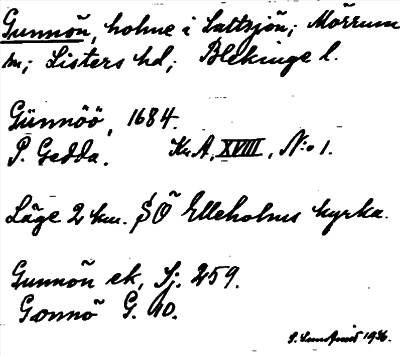 Gunnön, holme i Saltsjön; Mörrum
sn; Listers hd; Blekinge l.
Günnöö, 1684.
P. Gedda. Kr. A, XVIII, N:o 1.
Läge 2 km. SÖ Elleholms kyrka.
Gunnön ek, Sj. 259.
Gonnö G. 40.
1936.